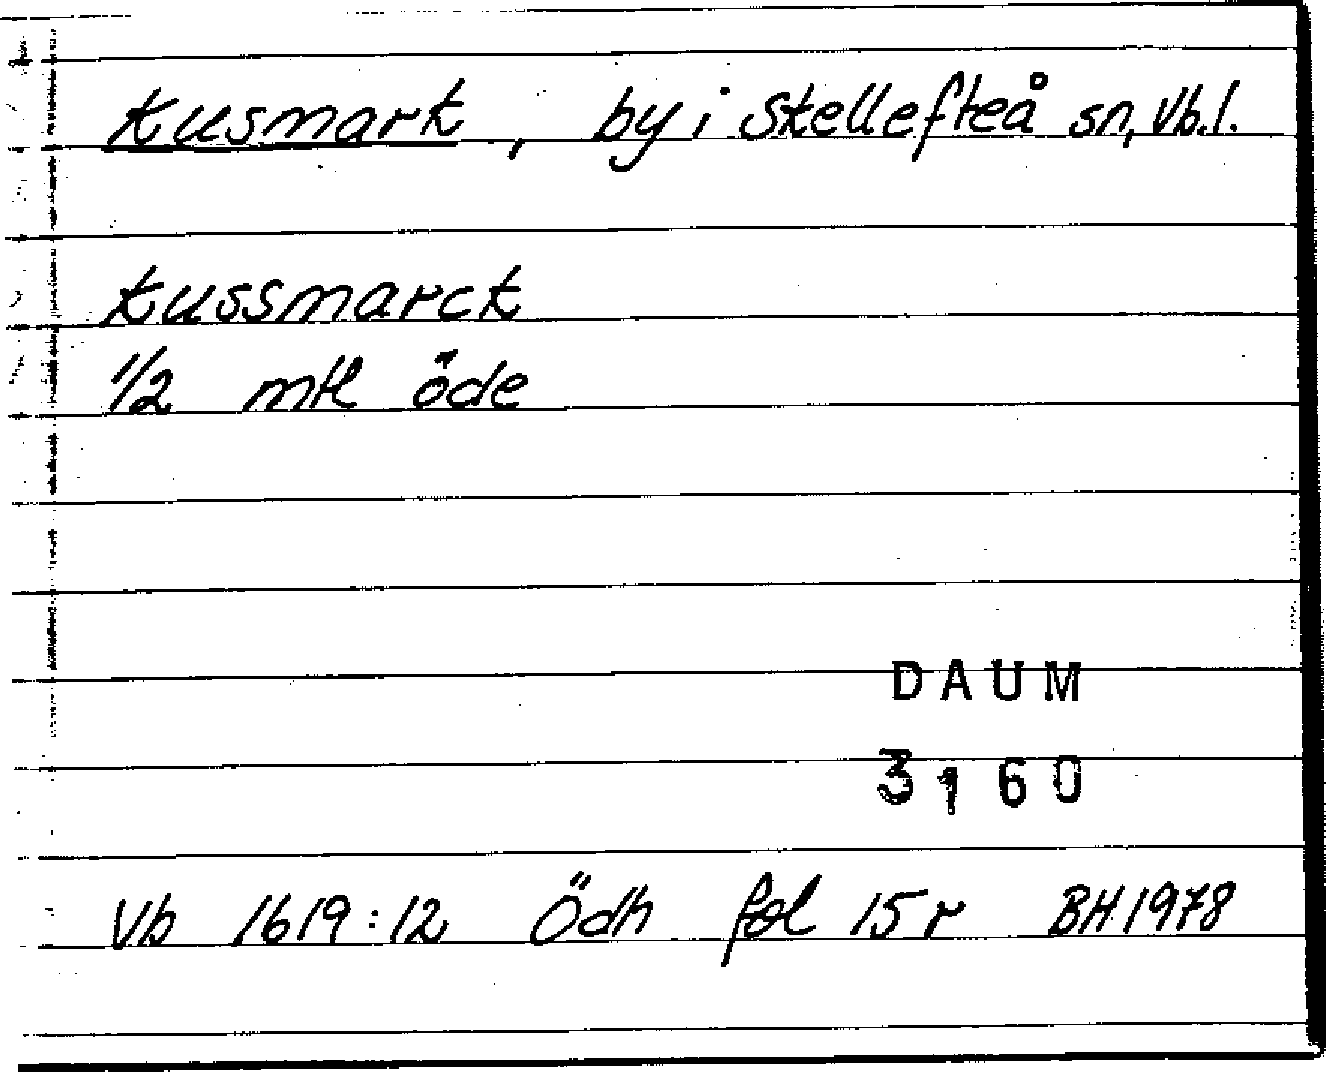 Kusmark, by i Skellefteå sn, Vb.l.
Kussmarck
1/2 mtl öde
DAUM
3160
Vb 1619:12 Ödh fol 15 r BH 1978